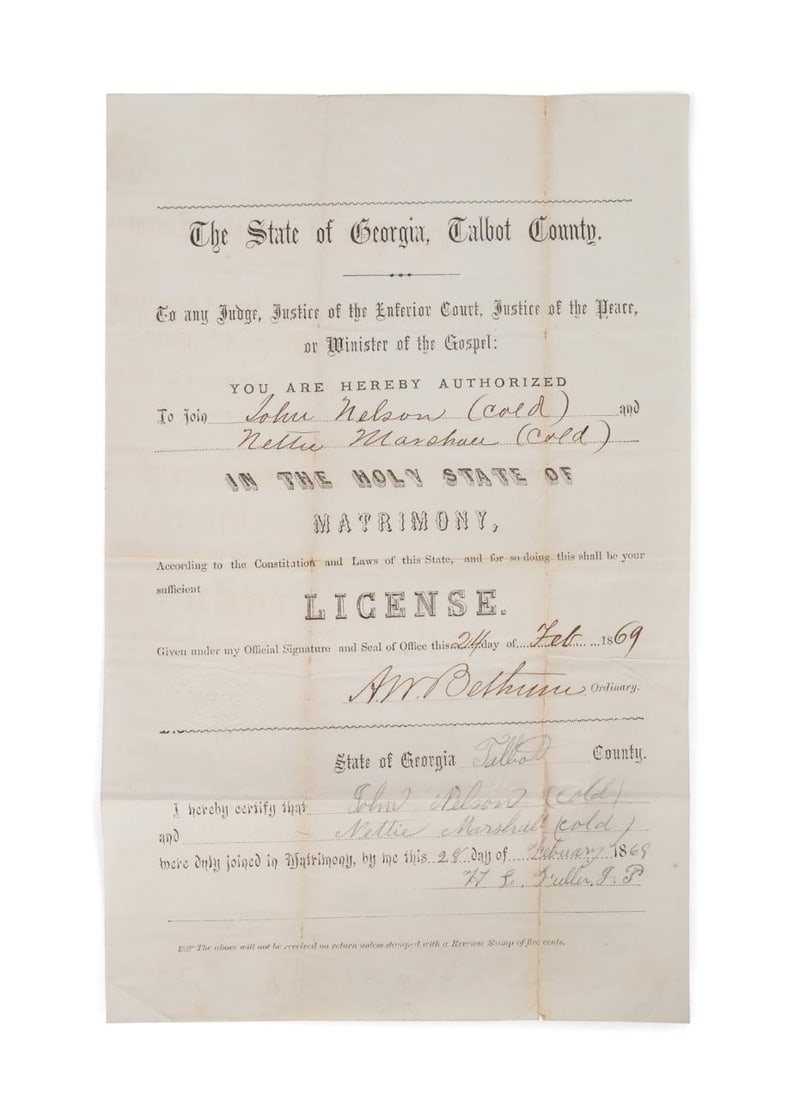 The State of Georgia, Talbot County.
To any Judge, Justice of the Inferior Court, Justice of the Peace,
or Minister of the Gospel:
YOU ARE HEREBY AUTHORIZED
To join John Nelson (cold) and
Nettie Marshall (cold)
IN THE HOLY STATE OF
MATRIMONY,
According to the Constitution and Laws of this State, and for so doing this shall be your
sufficient
LICENSE.
Given under my Official Signature and Seal of Office this 24 day of Feb 1869
A.W. Bethune Ordinary.
State of Georgia Talbot County.
I hereby certify that John Nelson (cold)
and Nettie Marshall (cold)
were duly joined in Matrimony, by me this 28 day of Febuary 1869
Fuller, J. P
The above will not be received on return unless stamped with a Revenue Stamp of five cents.